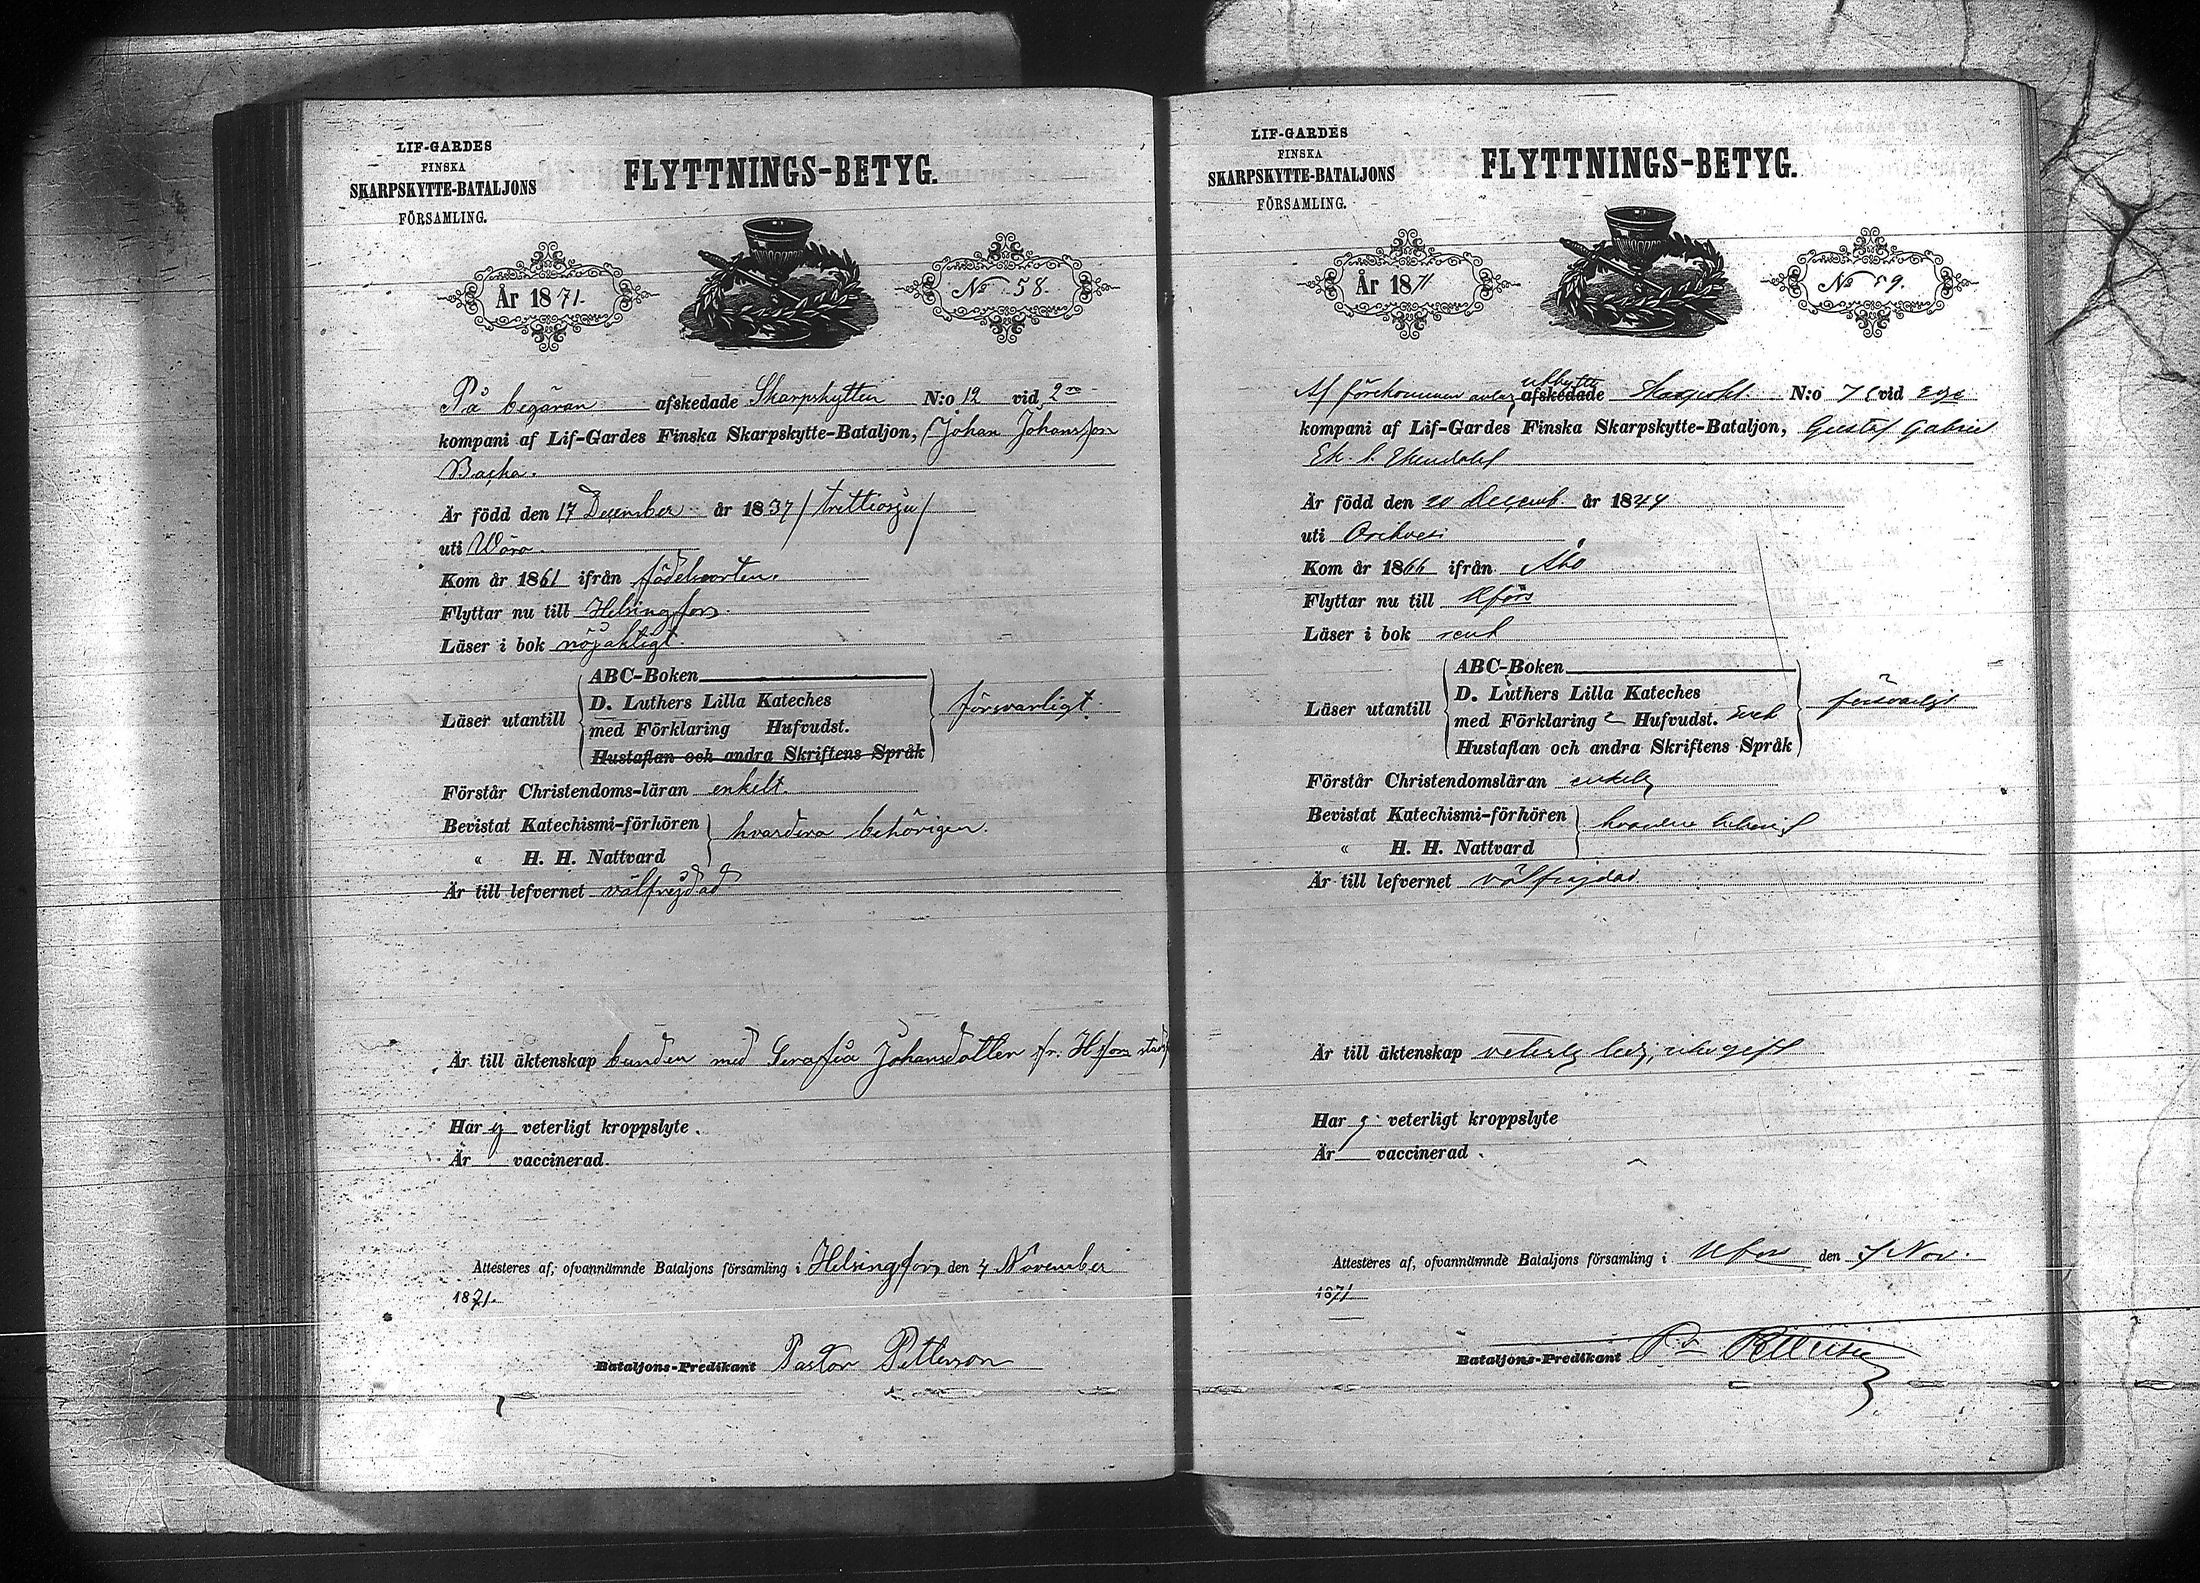 LIF-GARDES
FINSKA
SKARPSKYTTE-BATALJONS
FÖRSAMLING.
FLYTTNINGS-BETYG.
År 1871.
No 58.
På begäran afskedade Skarpskytten N:o 12 vid 2ra
kompani af Lif-Gardes Finska Skarpskytte-Bataljon, Johan Johansson
Backa.
Är född den 17 December år 1837 / trettiosju /
uti Wörå.
Kom år 1861 ifrån födelseorten.
Flyttar nu till Helsingfors.
Läser i bok nöjaktigt.
ABC-Boken
D. Luthers Lilla Kateches
Läser utantill med Förklaring Hufvudst. försvarligt.
Hustaflan och andra Skriftens Språk
Förstår Christendoms-läran enkelt.
Bevistat Katechismi-förhören hvardera behörigen.
« H. H. Nattvard
Är till lefvernet välfrejdad
Är till äktenskap bunden med Serafia Johansdotter fr. H:fors stad
Har ej veterligt kroppslyte.
Är vaccinerad.
Attesteres af, ofvannämnde Bataljons församling i Helsingfors den 4 November
1871.
Bataljons-Predikant Pastor Petterson
LIF-GARDES
FINSKA
SKARPSKYTTE-BATALJONS
FÖRSAMLING.
FLYTTNINGS-BETYG.
År 1871
No 59.
Af förekommen anledn utbytte afskedade Skarpskt. N:o 7 vid
kompani af Lif-Gardes Finska Skarpskytte-Bataljon, Gustaf Gabriel
Ek.
Är född den 20 Decemb. år 1844
uti Orihvesi
Kom år 1866 ifrån Åbo
Flyttar nu till Hfors
Läser i bok rent
ABC-Boken
D. Luthers Lilla Kateches
Läser utantill med Förklaring Hufvudst. försvarligt
Hustaflan och andra Skriftens Språk
Förstår Christendomsläran enkelt
Bevistat Katechismi-förhören hvardera
« H. H. Nattvard
Är till lefvernet välfrejdad
Är till äktenskap veterl. ledig, icke gift
Har ej veterligt kroppslyte
Är vaccinerad.
Attesteres af, ofvannämnde Bataljons församling i Hfors den Nov.
1871
Bataljons-Predikant